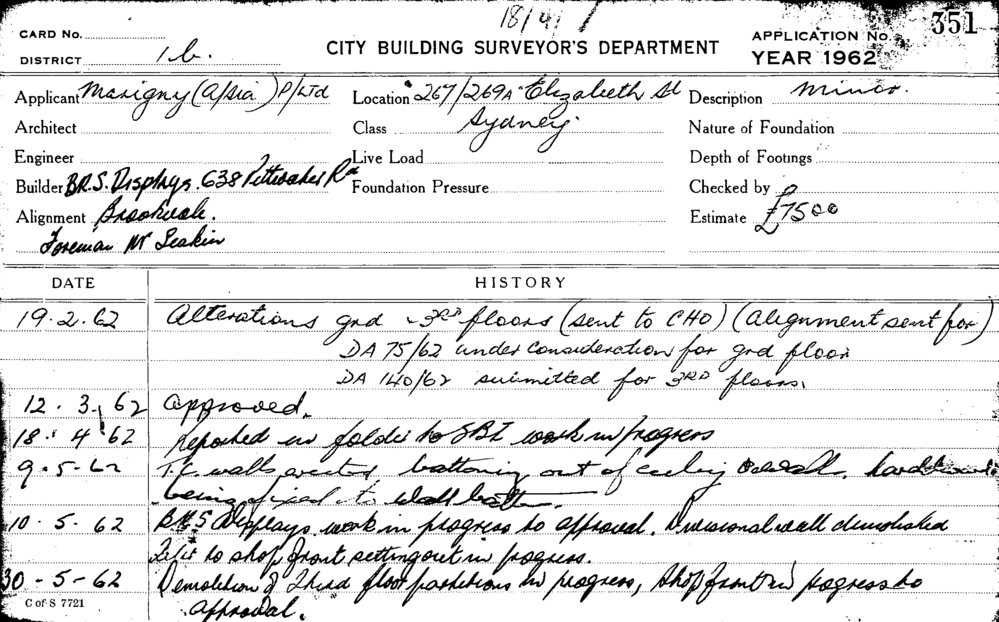 18/4/
CARD No.
DISTRICT 1b.
CITY BUILDING SURVEYOR'S DEPARTMENT
APPLICATION No. 351
YEAR 1962
Applicant Marigny (A/sia) P/Ltd
Location 267/269A Elizabeth St
Sydney.
Description minor.
Architect
Class
Nature of Foundation
Engineer
Live Load
Depth of Footings
Builder B.R.S. Displays. 638 Pittwater Rd
Foundation Pressure
Checked by
Alignment Brookvale.
Estimate £7500
Foreman Mr
DATE HISTORY
19.2.62 Alterations grd 3RD floors (sent to CHO) (Alignment sent for)
DA 75/62 under consideration for grd floor
DA 140/62 submitted for 3RD floors.
12.3.62 Approved.
18.4.62 Reported in folder to SBI work in progress
9-5-62 T.C. walls erected battening out of ceiling
being fixed to wall
10.5.62 B.R.S Displays work in progress to approval. Divisional wall demolished
to shop front setting out in progress.
30-5-62 Demolition of Third floor partitions in progress, shop front in progress to
approval.
C of S 7721